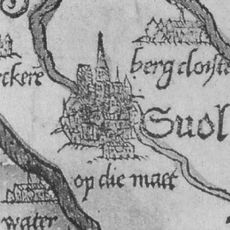 ckerē
berg cloiste
Suol
op die maet
water